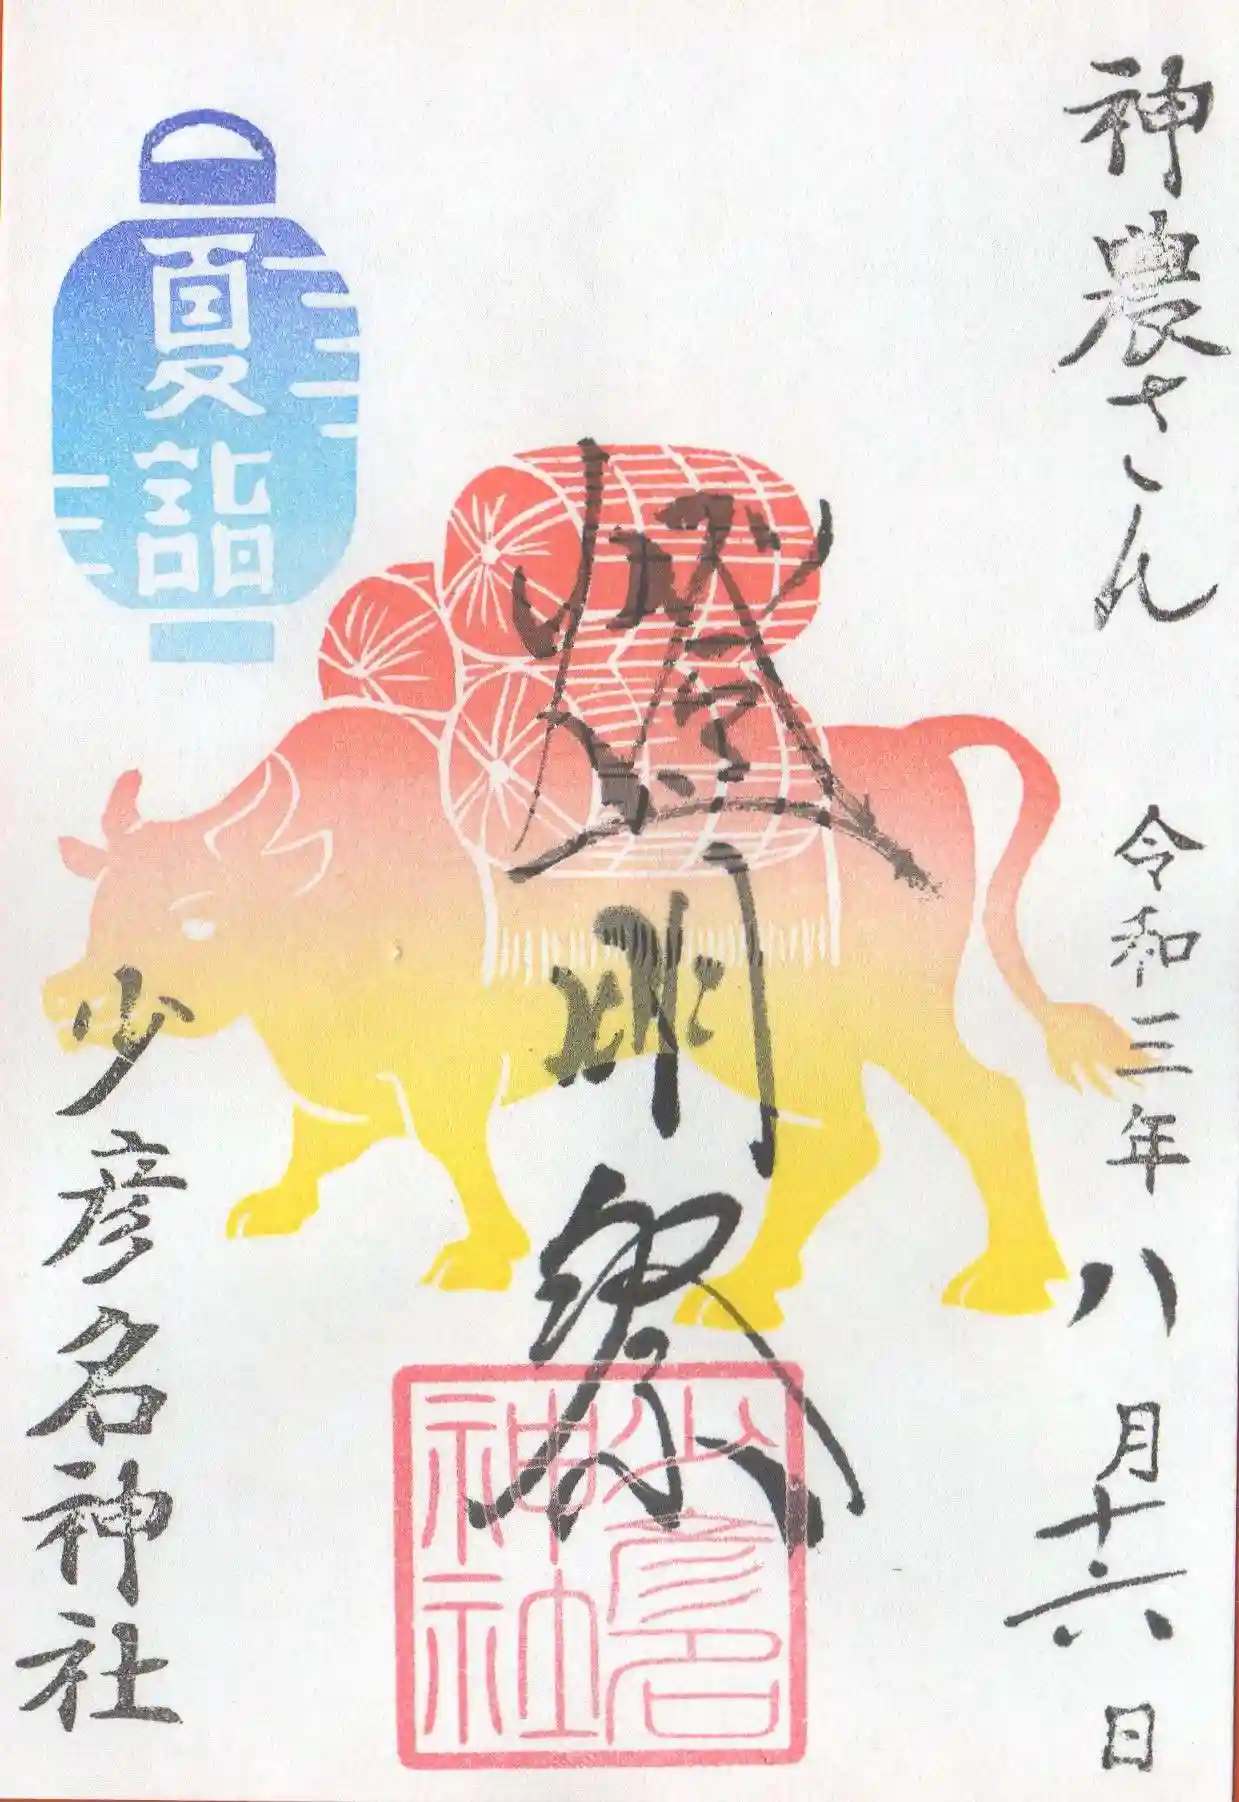 神農さん 令和三年八月十六日
燈明祭
少彦名
神社
夏詣
少彦名神社